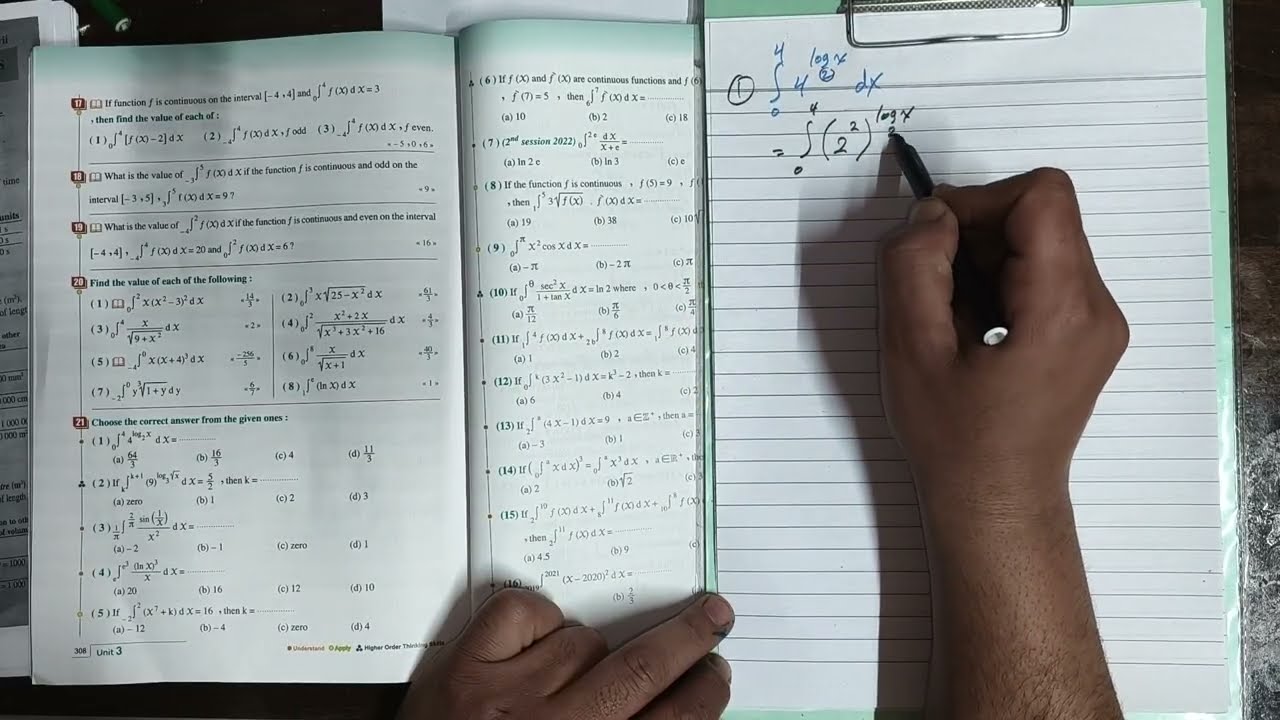 17 If function f is continuous on the interval [−4 , 4] and ₀∫⁴ f (X) d X = 3
, then find the value of each of :
(1) ₀∫⁴ [f (X) − 2] d X (2) ₋₄∫⁴ f (X) d X , f odd (3) ₋₄∫⁴ f (X) d X , f even.
« − 5 , 0 , 6 »
18 What is the value of ₋₃∫⁵ f (X) d X if the function f is continuous and odd on the
interval [−3 , 5] , ₃∫⁵ f (X) d X = 9 ? « 9 »
19 What is the value of ₋₄∫² f (X) d X if the function f is continuous and even on the interval
[−4 , 4] , ₋₄∫⁴ f (X) d X = 20 and ₀∫² f (X) d X = 6 ? « 16 »
20 Find the value of each of the following :
(1) ₀∫² X (X² − 3)² d X « 14/3 » (2) ₀∫³ X √(25 − X²) d X « 61/3 »
(3) ₀∫⁴ X/√(9 + X²) d X « 2 » (4) ₀∫² (X² + 2X)/√(X³ + 3X² + 16) d X « 4/3 »
(5) ₋₄∫⁰ X (X + 4)³ d X « −256/5 » (6) ₀∫⁸ X/√(X + 1) d X « 40/3 »
(7) ₋₂∫⁰ y ³√(1 + y) d y « 6/7 » (8) ₁∫ᵉ (ln X) d X « 1 »
21 Choose the correct answer from the given ones :
(1) ₀∫⁴ 4^(log₂ X) d X = ............
(a) 64/3 (b) 16/3 (c) 4 (d) 11/3
(2) If ₖ∫ᵏ⁺¹ (9)^(log₃ √X) d X = 5/2 , then k = ............
(a) zero (b) 1 (c) 2 (d) 3
(3) ∫ sin(1/X)/X² d X = ............
(a) − 2 (b) − 1 (c) zero (d) 1
(4) ∫ (ln X)³/X d X = ............
(a) 20 (b) 16 (c) 12 (d) 10
(5) If ₋₂∫² (X⁷ + k) d X = 16 , then k = ............
(a) − 12 (b) − 4 (c) zero (d) 4
308 Unit 3 Understand Apply Higher Order Thinking Skills
(6) If f (X) and f′ (X) are continuous functions and f (6)
, f (7) = 5 , then ₆∫⁷ f′ (X) d X = ............
(a) 10 (b) 2 (c) 18
(7) (2nd session 2022) ₀∫²ᵉ d X/(X + e) = ............
(a) ln 2 e (b) ln 3 (c) e
(8) If the function f is continuous , f (5) = 9 , f (
, then ₁∫⁵ 3 √f (X) . f′ (X) d X = ............
(a) 19 (b) 38 (c) 10
(9) ₀∫^π X² cos X d X = ............
(a) − π (b) − 2 π (c) π
(10) If ₀∫^θ sec² X/(1 + tan X) d X = ln 2 where , 0 < θ < π/2
(a) π/12 (b) π/6 (c) π/4
(11) If ₁∫⁴ f (X) d X + ₂ₖ∫⁸ f (X) d X = ₁∫⁸ f (X) d
(a) 1 (b) 2 (c) 4
(12) If ₀∫ᵏ (3 X² − 1) d X = k³ − 2 , then k = ............
(a) 6 (b) 4 (c) 2
(13) If ₂∫ᵃ (4 X − 1) d X = 9 , a ∈ ℤ⁺ , then a =
(a) − 3 (b) 1 (c) 3
(14) If (₀∫ᵃ X d X)³ = ₀∫ᵃ X³ d X , a ∈ ℝ⁺ , the
(a) 2 (b) √2 (c) 3
(15) If ₂∫¹⁰ f (X) d X + ₈∫¹¹ f (X) d X + ₁₀∫⁸ f (X)
, then ₂∫¹¹ f (X) d X = ............
(a) 4.5 (b) 9 (c)
(16) ∫²⁰²¹ (X − 2020)² d X = ............
(b) 2/3
① ₀∫⁴ 4^(log₂ x) dx
= ₀∫⁴ (2²)^(log₂ x)